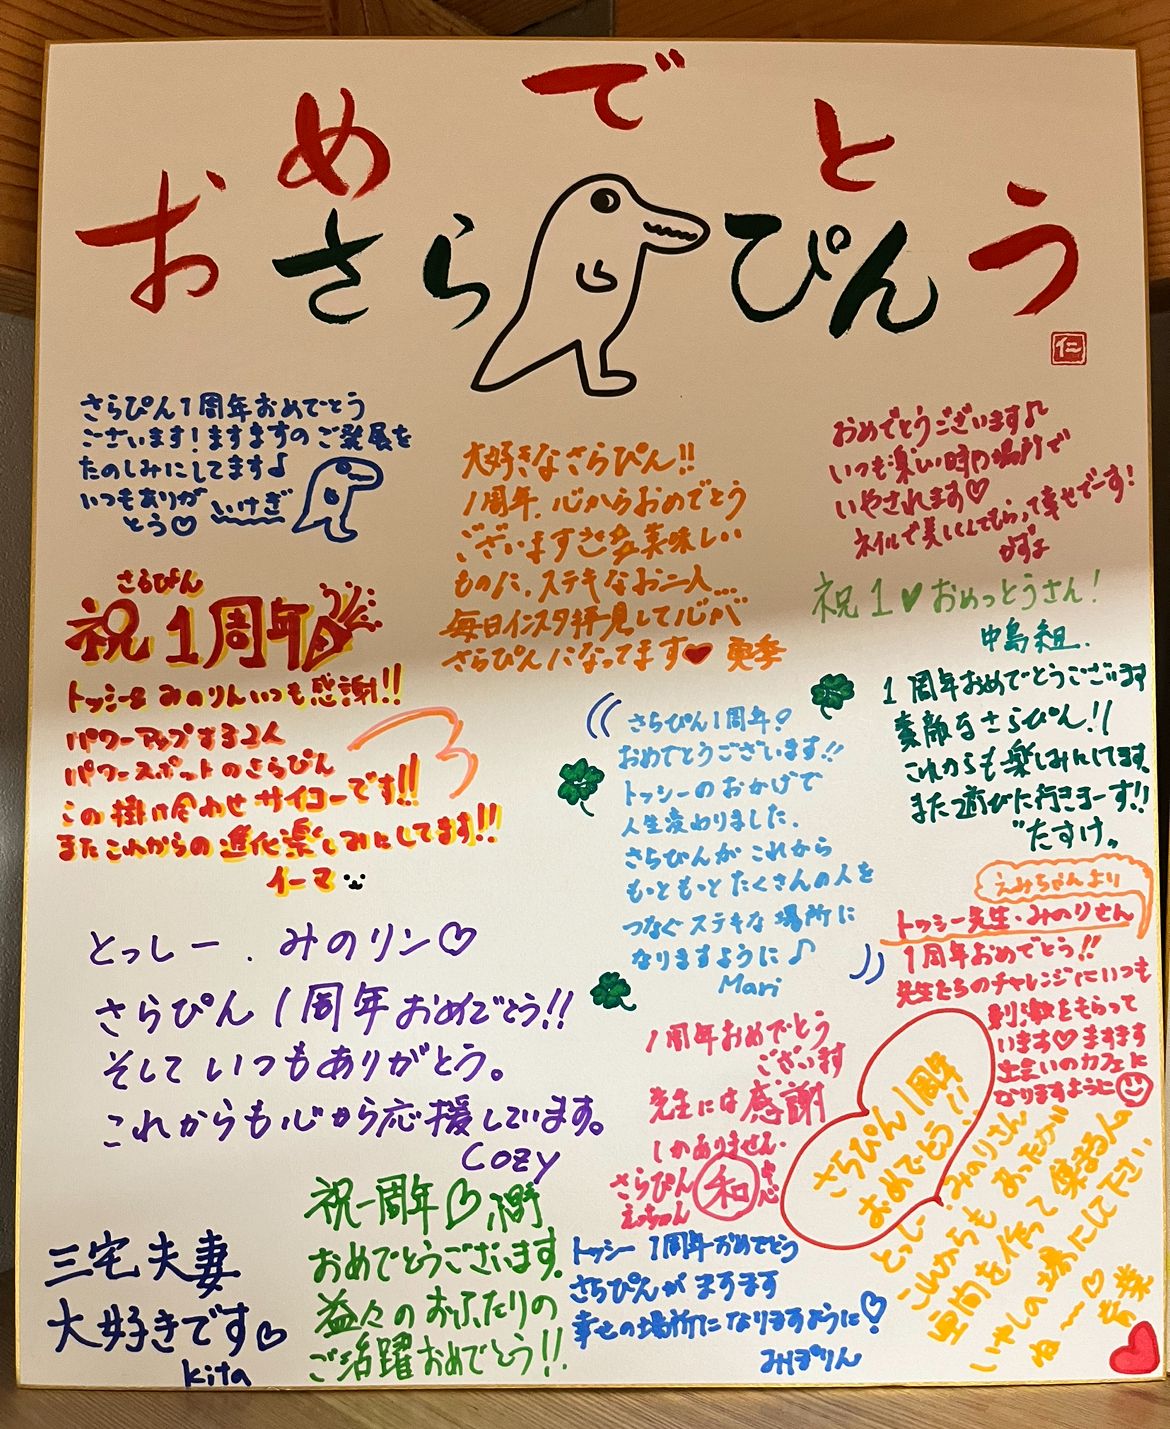 おめでとう
さらぴん
仁
さらぴん1周年おめでとう
ございます！ますますのご発展を
たのしみにしてます♪
いつもありが
とう♡ いけぎ
大好きなさらぴん!!
1周年、心からおめでとう
ございます 美味しい
ものに、ステキなお二人…
毎日インスタ拝見して心が
さらぴんになってます♥
おめでとうございます♪
いつも楽しい時間 場所で
いやされます♡
ネイルで美しくしてもらって幸せでーす！
かずよ
祝1♥おめっとうさん！
中島組.
さらぴん
祝1周年
トッシー& みのりんいつも感謝!!
パワーアップする2人
パワースポットのさらぴん
この掛け合わせ サイコーです!!
またこれからの進化楽しみにしてます!!
イーマ
1周年おめでとうございます
素敵なさらぴん!!
これからも楽しみにしてます。
また遊びに行きまーす!!
たすけ。
さらぴん1周年♡
おめでとうございます!!
トッシーのおかげで
人生変わりました.
さらぴんが これから
もっともっと たくさんの人を
つなぐステキな場所に
なりますように♪
Mari
えみちゃんより
トッシー先生・みのりさん
1周年おめでとう!!
先生たちのチャレンジにいつも
刺激をもらって
います♡ますます
出会いのカフェに
なりますように
とっしー . みのリン♡
さらぴん 1周年おめでとう!!
そして いつもありがとう。
これからも心から応援しています。
Cozy
1周年おめでとう
ございます
先生には感謝
しかありません.
さらぴん 和 中心
えっちゃん
さらぴん1周年
おめでとう!
とっしー みのりさん
これからも あったかい
空間を作って 集まる人
いやしの場にして下さい
ね〜♡
祝一周年♡
おめでとうございます.
益々のおふたりの
ご活躍おめでとう!!
三宅夫妻
大好きです♡
kita
トッシー 1周年おめでとう
さらぴんが ますます
幸せの場所になりますように♡
みぽりん